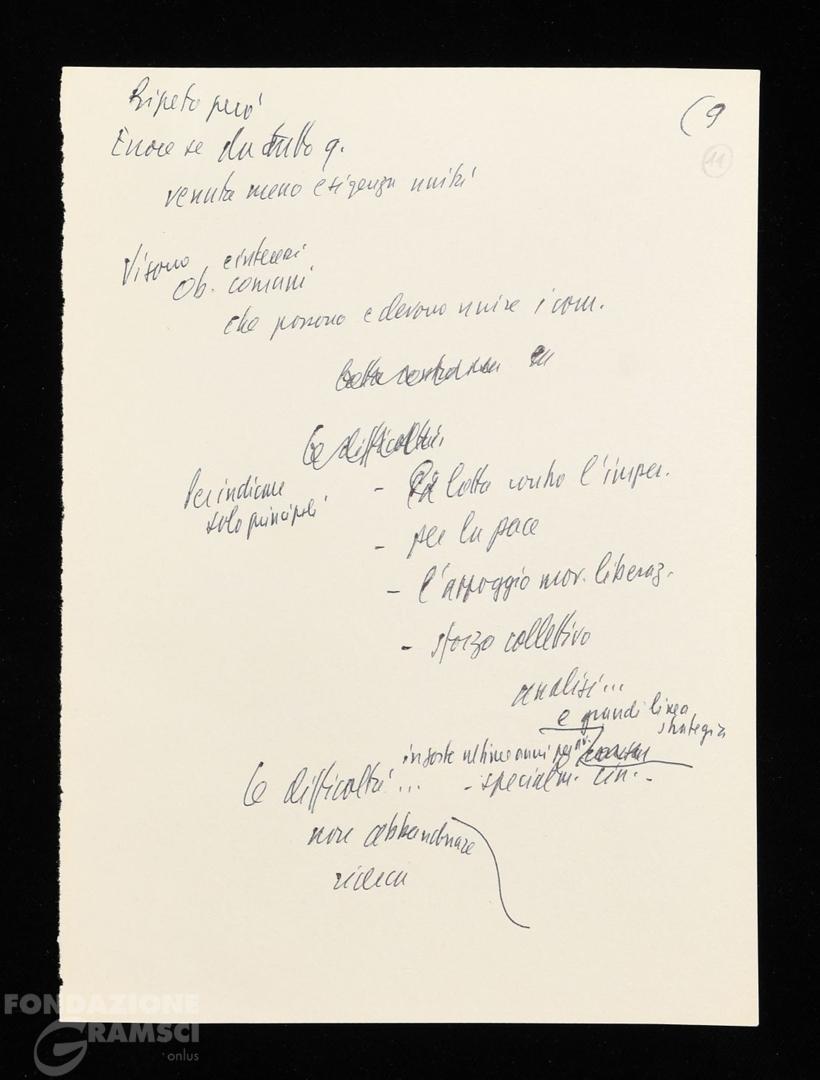 Ripeto però
(9
11
Errore se da tutto q.
venuta meno esigenza unità
Vi sono e interessi
Ob. comuni
che possono e devono unire i com.
Le difficoltà
Per indicare
solo principali
- La lotta contro l'imper.
- per la pace
- l'appoggio mov. liberaz.
- sforzo collettivo
analisi...
e grandi linea
strategia
insorte ultimi anni
Le difficoltà... - specialm. cin.-
non abbandonare
ricerca
FONDAZIONE
GRAMSCI
onlus